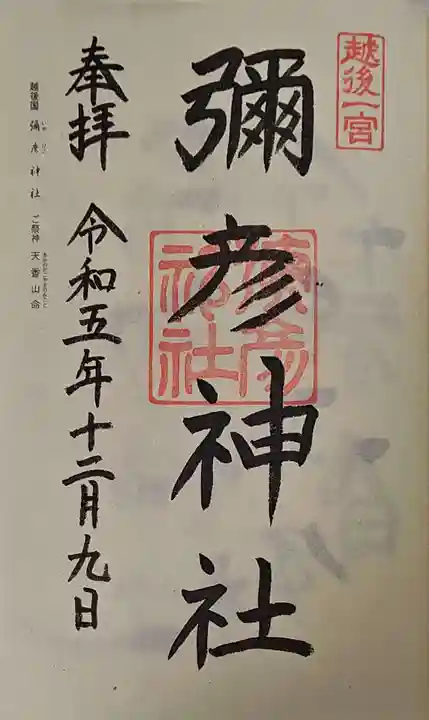 越後一宮
彌彦神社
彌彦神社
奉拝
令和五年十二月九日
越後国 彌彦神社 ご祭神 天香山命